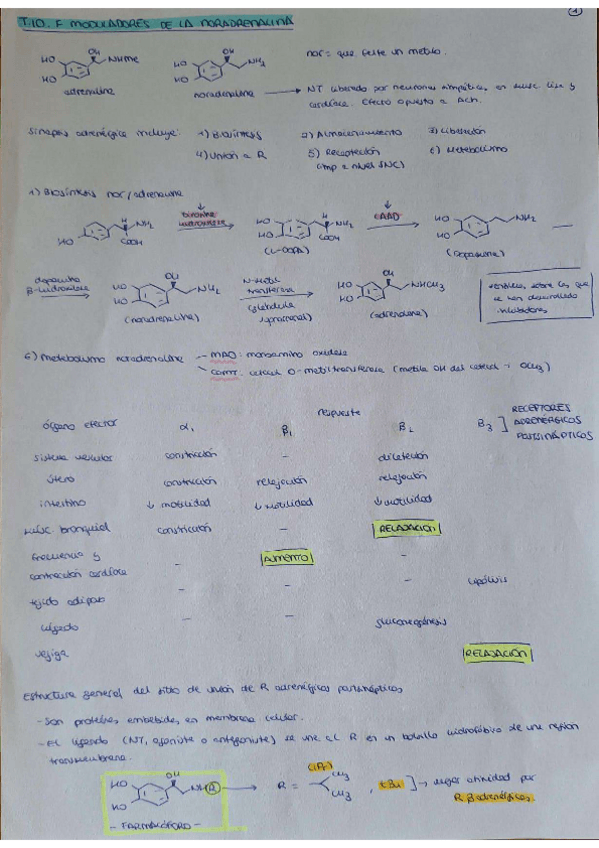 T.10. F MODULADORES DE LA NORADRENALINA
1
OH
NHMe
HO
HO
adrenalina
OH
NH2
HO
HO
noradrenalina
nor = que falta un metilo.
NT liberado por neuronas simpáticas, en musc. liso y
cardíaco. Efecto opuesto a Ach.
Sinapsis adrenérgica incluye: 1) Biosíntesis 2) Almacenamiento 3) Liberación
4) Unión a R 5) Recaptación 6) Metabolismo
(imp a nivel SNC)
1) Biosíntesis nor/adrenalina
HO
H
NH2
COOH
tirosina
hidroxilasa
HO
HO
H
NH2
COOH
(L-DOPA)
CAAD
HO
HO
NH2
(Dopamina)
dopamina
β-hidroxilasa
HO
HO
OH
NH2
(noradrenalina)
N-metil
transferasa
(glándula
suprarrenal)
HO
HO
OH
NHCH3
(adrenalina)
sobre los que
se han desarrollado
inhibidores
6) Metabolismo noradrenalina
- MAO: monoamino oxidasa
- COMT: catecol O-metiltransferasa (metila OH del catecol → OCH3)
respuesta
órgano efector α1 β1 β2 β3 ] RECEPTORES
ADRENÉRGICOS
POSTSINÁPTICOS
sistema vascular constricción - dilatación
útero constricción relajación relajación
intestino ↓ motilidad ↓ motilidad ↓ motilidad
músc. bronquial constricción - RELAJACIÓN
frecuencia y
contracción cardíaca - AUMENTO -
tejido adiposo - - lipólisis
hígado - - gluconeogénesis
vejiga RELAJACIÓN
Estructura general del sitio de unión de R adrenérgicos postsinápticos
- Son proteínas embebidas en membrana celular.
- El ligando (NT, agonista o antagonista) se une al R en un bolsillo hidrofóbico de una región
transmembrana.
HO
HO
OH
NH R
- FARMACÓFORO -
R =
(iPr)
CH3
CH3
, tBu ] → mejor afinidad por
R β adrenérgicos.